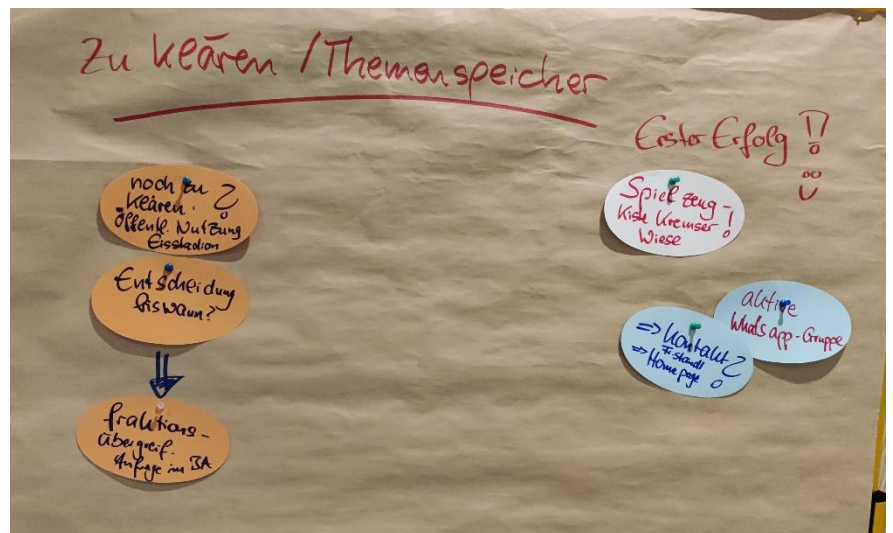 Zu klären / Themenspeicher
Erster Erfolg !!
noch zu
klären. ?
öffentl. Nutzung
Eisstadion
Entscheidung
bis wann?
fraktions-
übergreif.
Anfrage im BA
Spielzeug-
Kiste Kremser !
Wiese
aktive
WhatsApp-Gruppe
=> Kontakt ?
=> Homepage